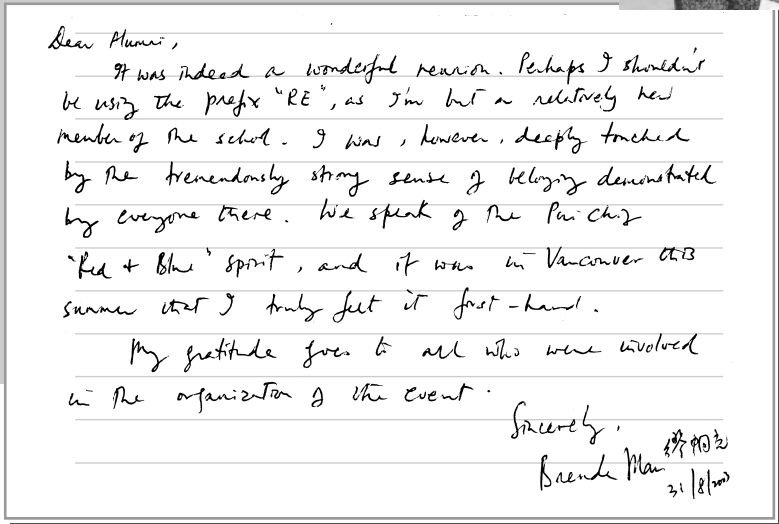 Dear Alumni,
It was indeed a wonderful reunion. Perhaps I shouldn't
be using the prefix "RE", as I'm but a relatively new
member of the school. I was, however, deeply touched
by the tremendously strong sense of belonging demonstrated
by everyone there. We speak of the Pui Ching
"Red & Blue" spirit, and it was in Vancouver this
summer that I truly felt it first-hand.
My gratitude goes to all who were involved
in the organization of the event.
Sincerely,
Brenda Man
31/8/2003